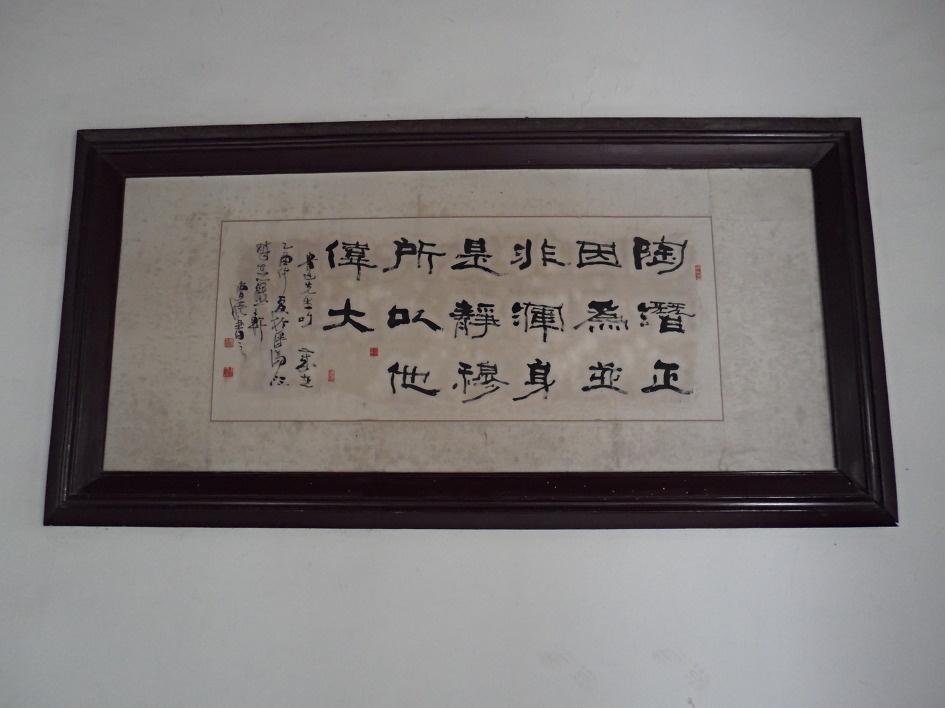 陶潛正
因為並
非渾身
是靜穆
所以他
偉大
魯迅先生句
乙酉仲夏於潯陽
書之